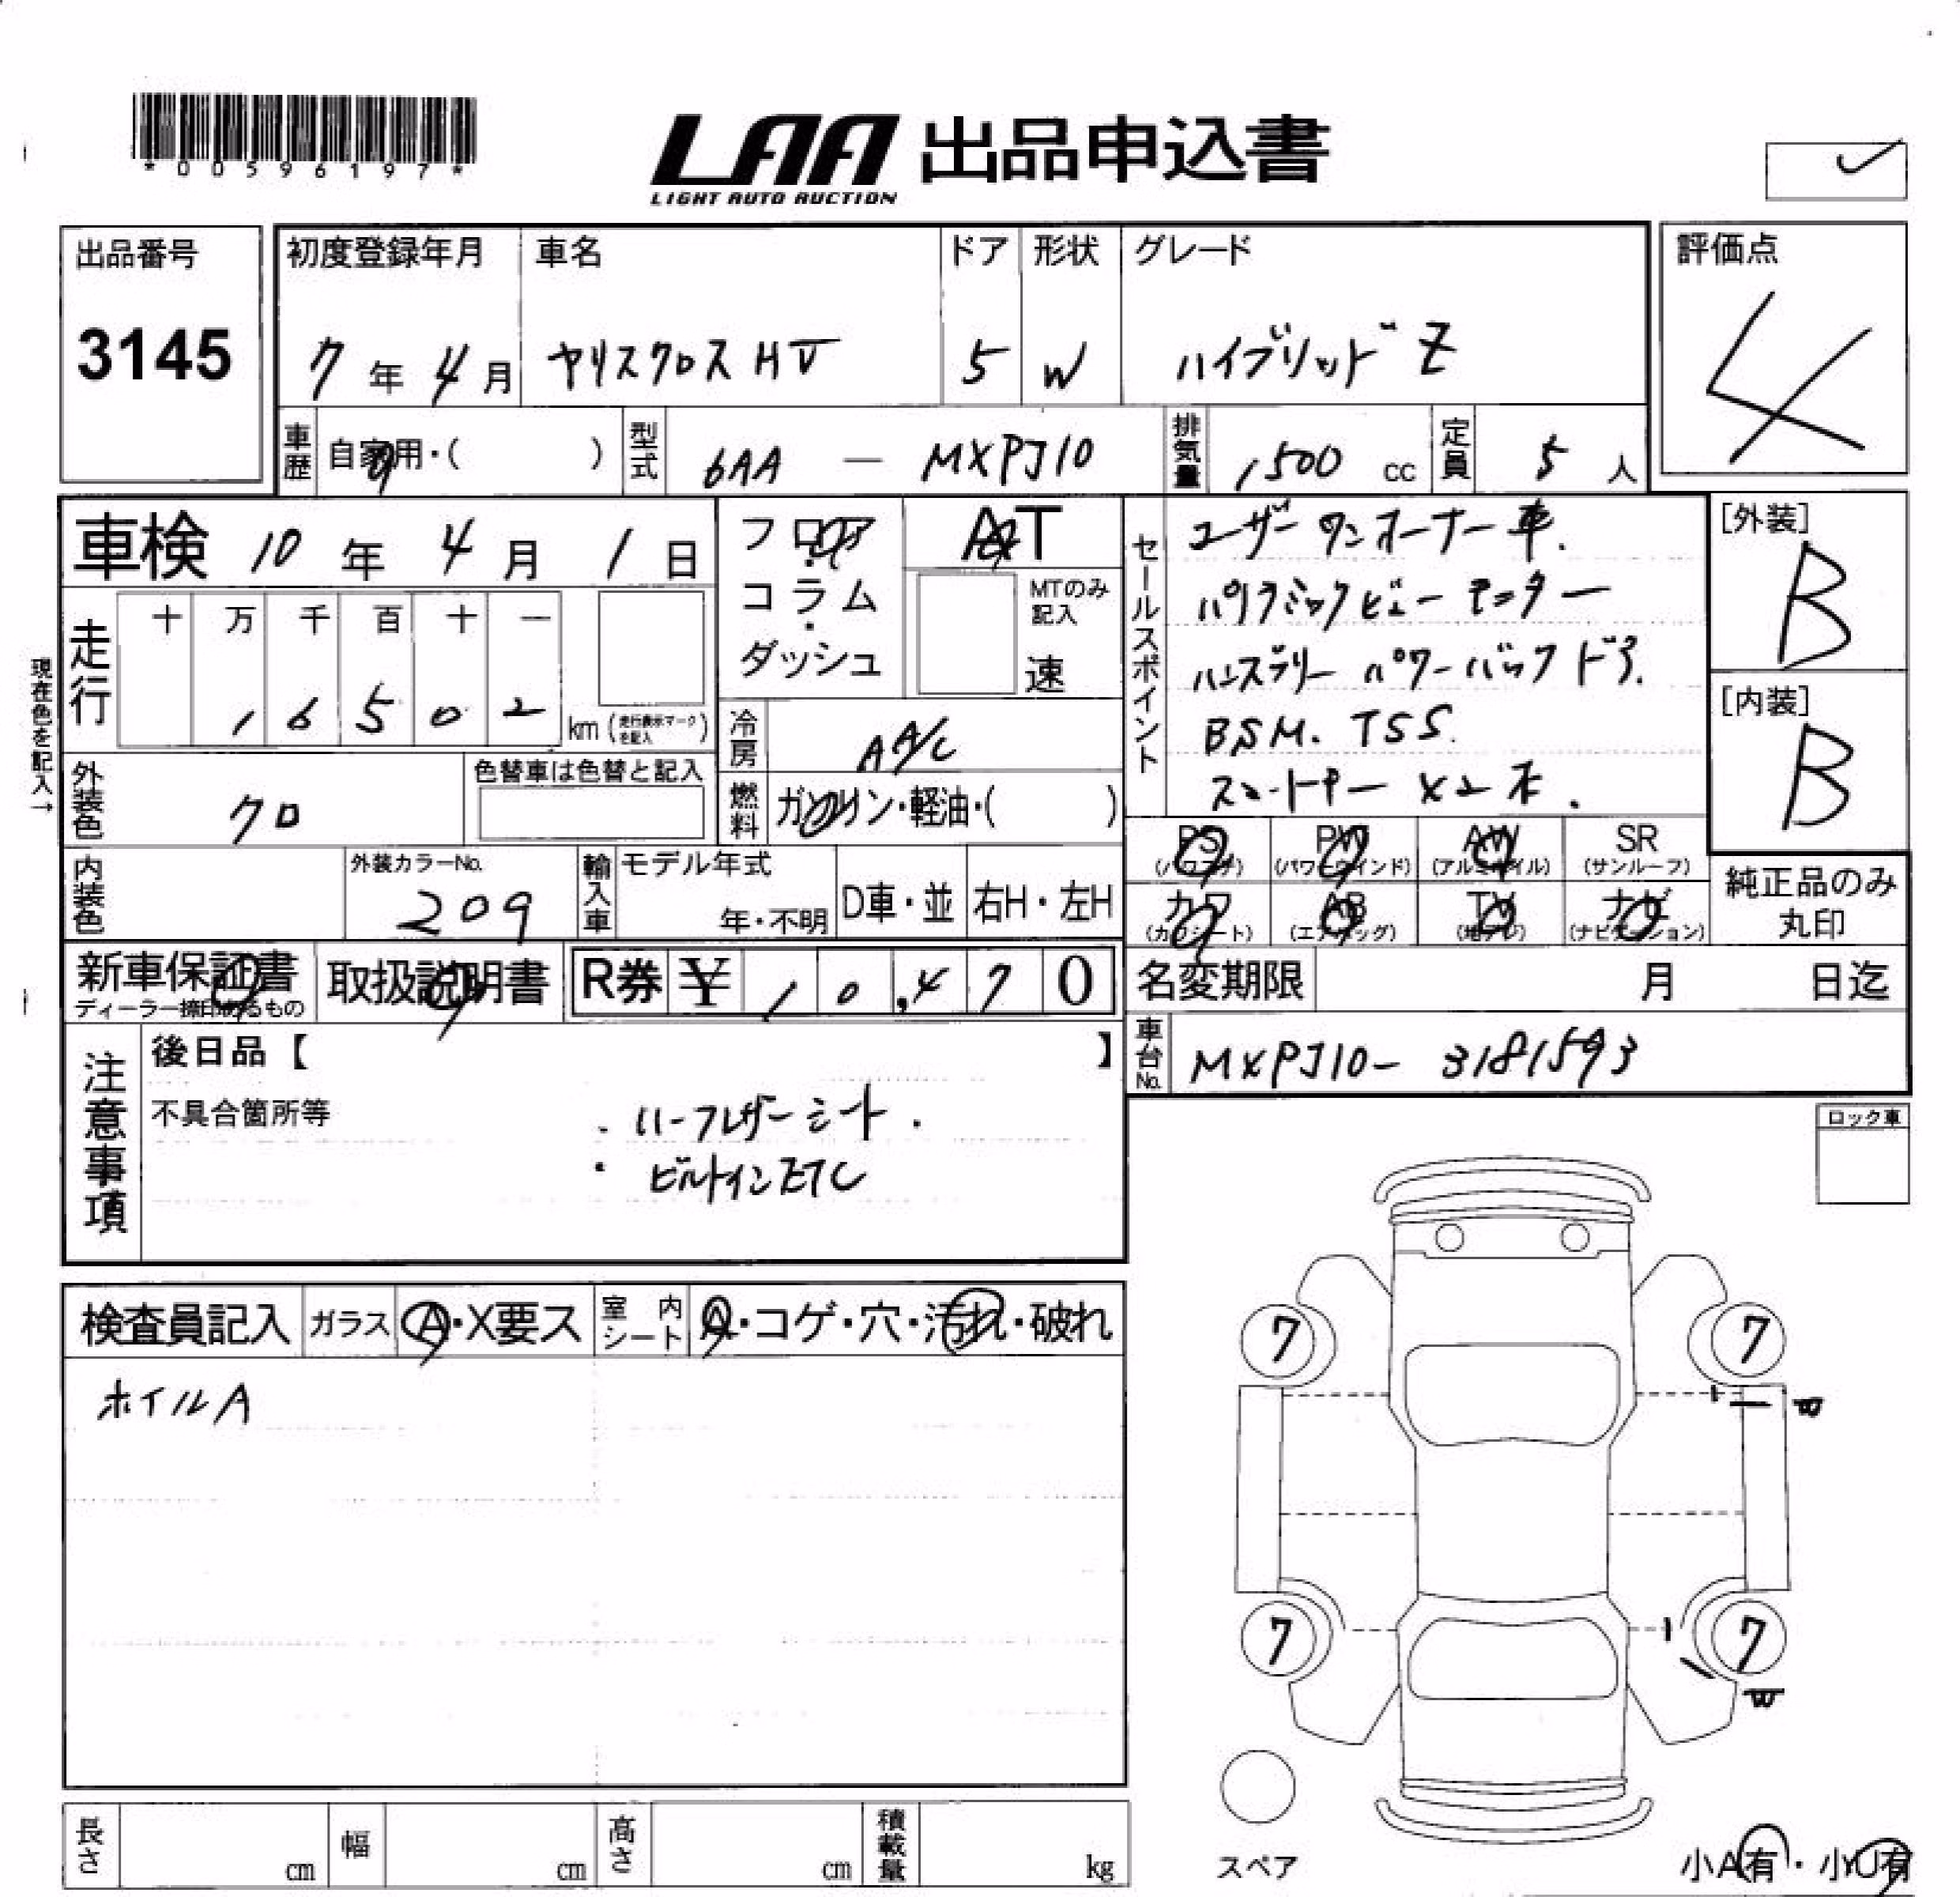 *00596197*
LAA 出品申込書
LIGHT AUTO AUCTION
出品番号
3145
初度登録年月
7年4月
車名
ヤリスクロスHV
ドア
5
形状
W
グレード
ハイブリッドZ
評価点
4
車歴
自家用・( )
型式
6AA － MXPJ10
排気量
1500 cc
定員
5人
車検 10年 4月 1日
フロア・コラム・ダッシュ
AT
MTのみ記入
速
セールスポイント
ユーザーワンオーナー車.
パノラミックビューモニター
ハンズフリーパワーバックドア.
BSM. TSS.
スマートキー×2本.
[外装]
B
[内装]
B
現在色を記入→
走行
十 万 千 百 十 一
1 6 5 0 2
km (走行表示マークを記入)
冷房
AA/C
燃料
ガソリン・軽油・( )
外装色
クロ
色替車は色替と記入
内装色
外装カラーNo.
209
輸入車
モデル年式
年・不明
D車・並
右H・左H
PS (パワステ)
PW (パワーウインド)
AW (アルミホイル)
SR (サンルーフ)
カワ (カワシート)
AB (エアバッグ)
TV (地デジ)
ナビ (ナビゲーション)
純正品のみ丸印
新車保証書
ディーラー捺印あるもの
取扱説明書
R券 ¥ 10,470
名変期限 月 日迄
車台No.
MXPJ10- 3181593
注意事項
後日品【 】
不具合箇所等
・ハーフレザーシート.
・ビルトインETC
ロック車
検査員記入
ガラス
A・X要ス
室内シート
A・コゲ・穴・汚れ・破れ
ホイルA
7
7
7
7
W
スペア
小A有・小U有
長さ cm
幅 cm
高さ cm
積載量 kg